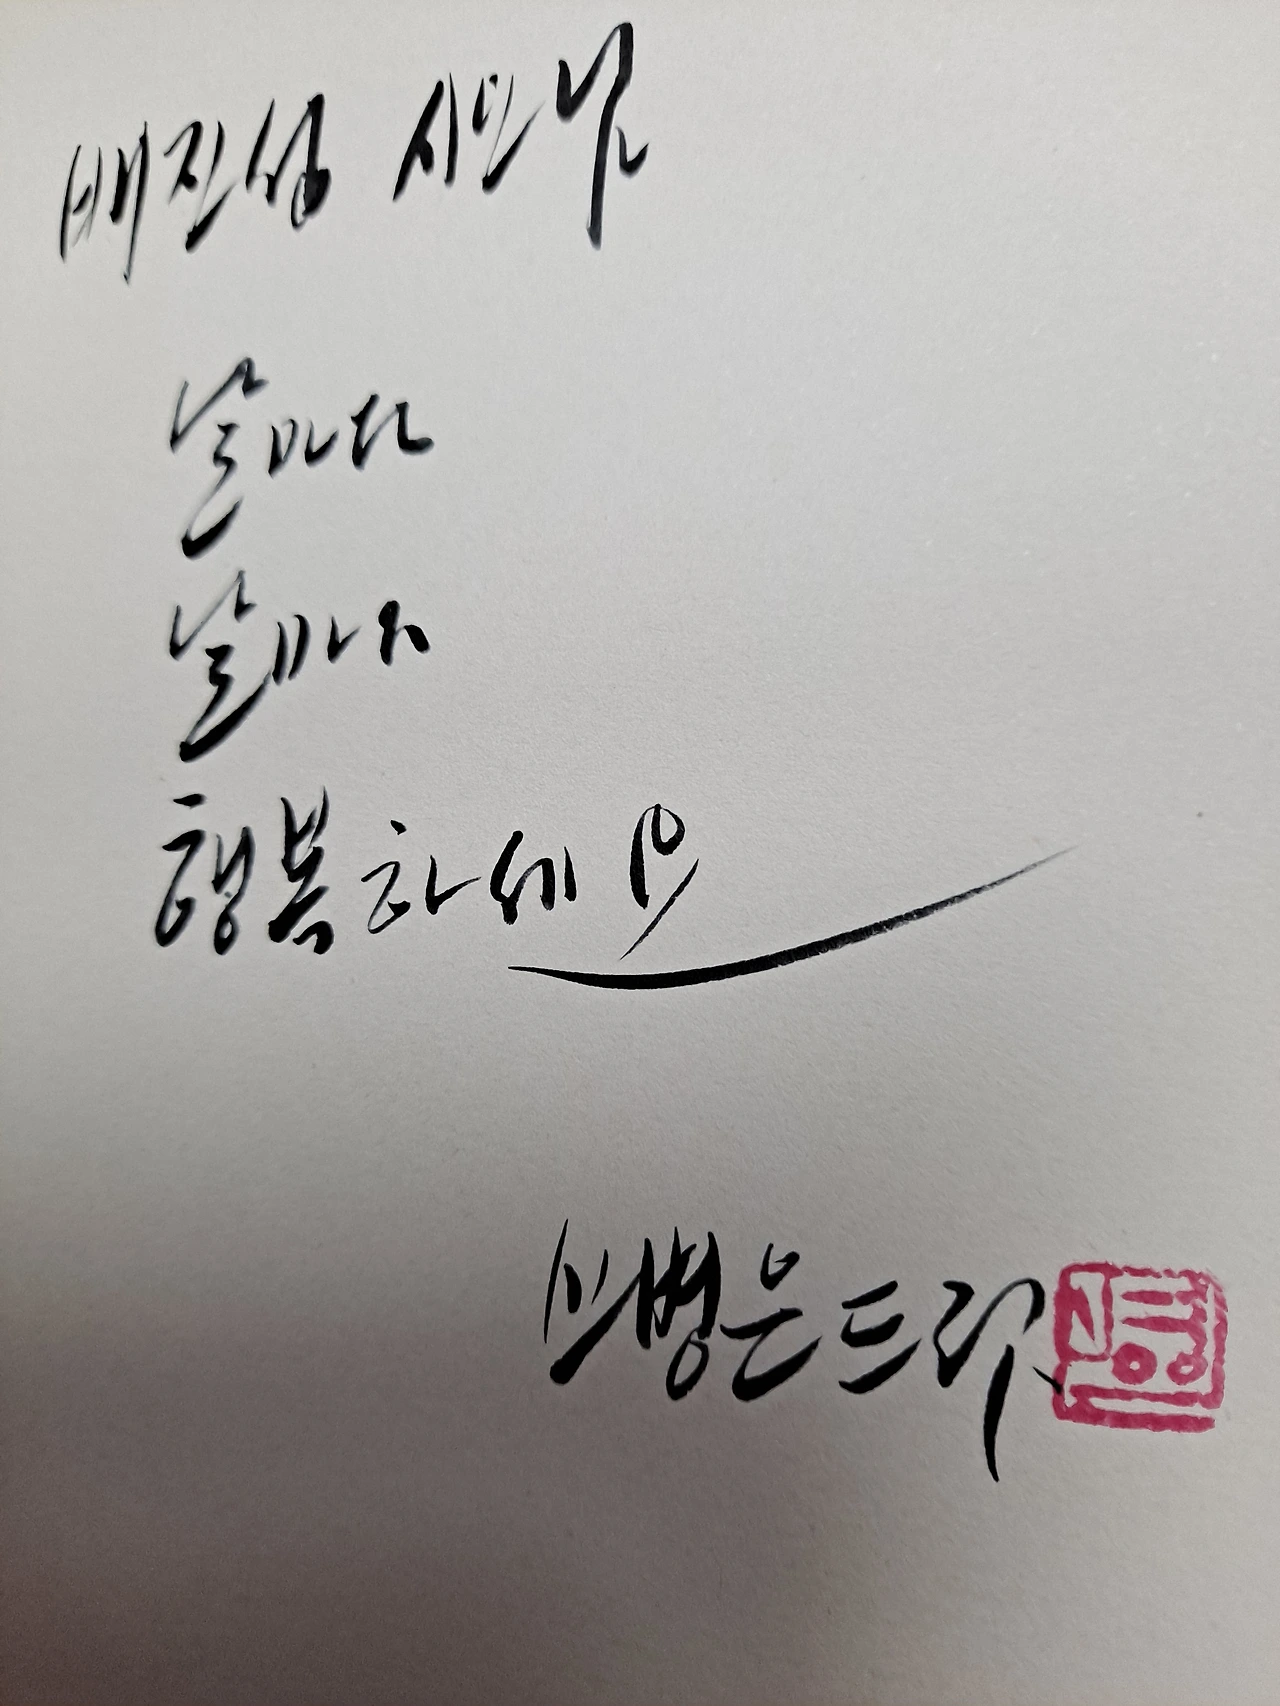 배진성 시인님
날마다
날마다
행복하세요
오병은 드림